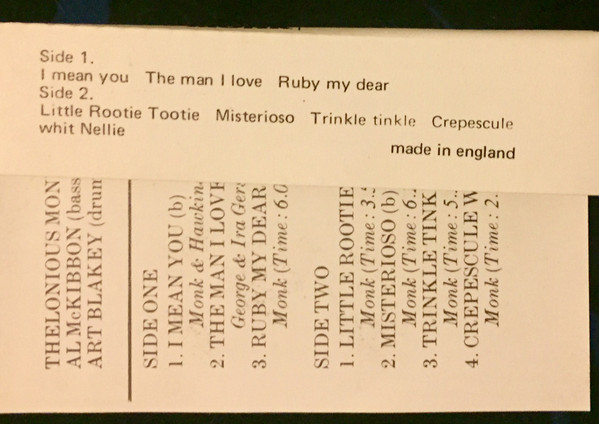 Side 1.
I mean you The man I love Ruby my dear
Side 2.
Little Rootie Tootie Misterioso Trinkle tinkle Crepescule
whit Nellie
made in england
THELONIOUS MON
AL McKIBBON (bass
ART BLAKEY (drum
SIDE ONE
1. I MEAN YOU (b)
Monk & Hawkin
2. THE MAN I LOVE
George & Ira Ger
3. RUBY MY DEAR
Monk (Time: 6.0
SIDE TWO
1. LITTLE ROOTIE
Monk (Time: 3.
2. MISTERIOSO (b)
Monk (Time: 6.
3. TRINKLE TINK
Monk (Time: 5.
4. CREPESCULE W
Monk (Time: 2.